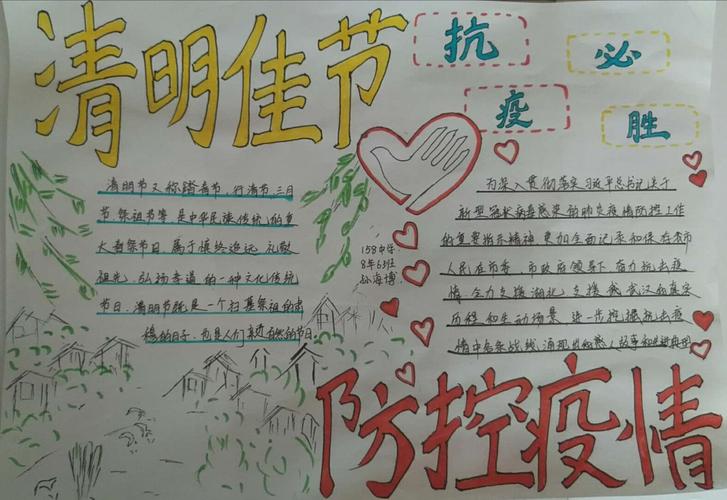 清明佳节
抗
必
疫
胜
清明节又称踏青节、行清节、三月
节、祭祖节等，是中华民族传统的重
大春祭节日，属于慎终追远、礼敬
祖先、弘扬孝道的一种文化传统
节日。清明节既是一个扫墓祭祖的肃
穆的日子，也是人们亲近自然的节日
158中学
8年6班
孙海博
为深入贯彻落实习近平总书记关于
新型冠状病毒感染的肺炎疫情防控工作
的重要指示精神，更加全面记录和保存我市
人民在市委、市政府领导下奋力抗击疫
情、全力支援湖北、支援我武汉的真实
历程和生动场景，进一步挖掘抗击疫
情中各条战线涌现出的感人故事和先进典型
防控疫情